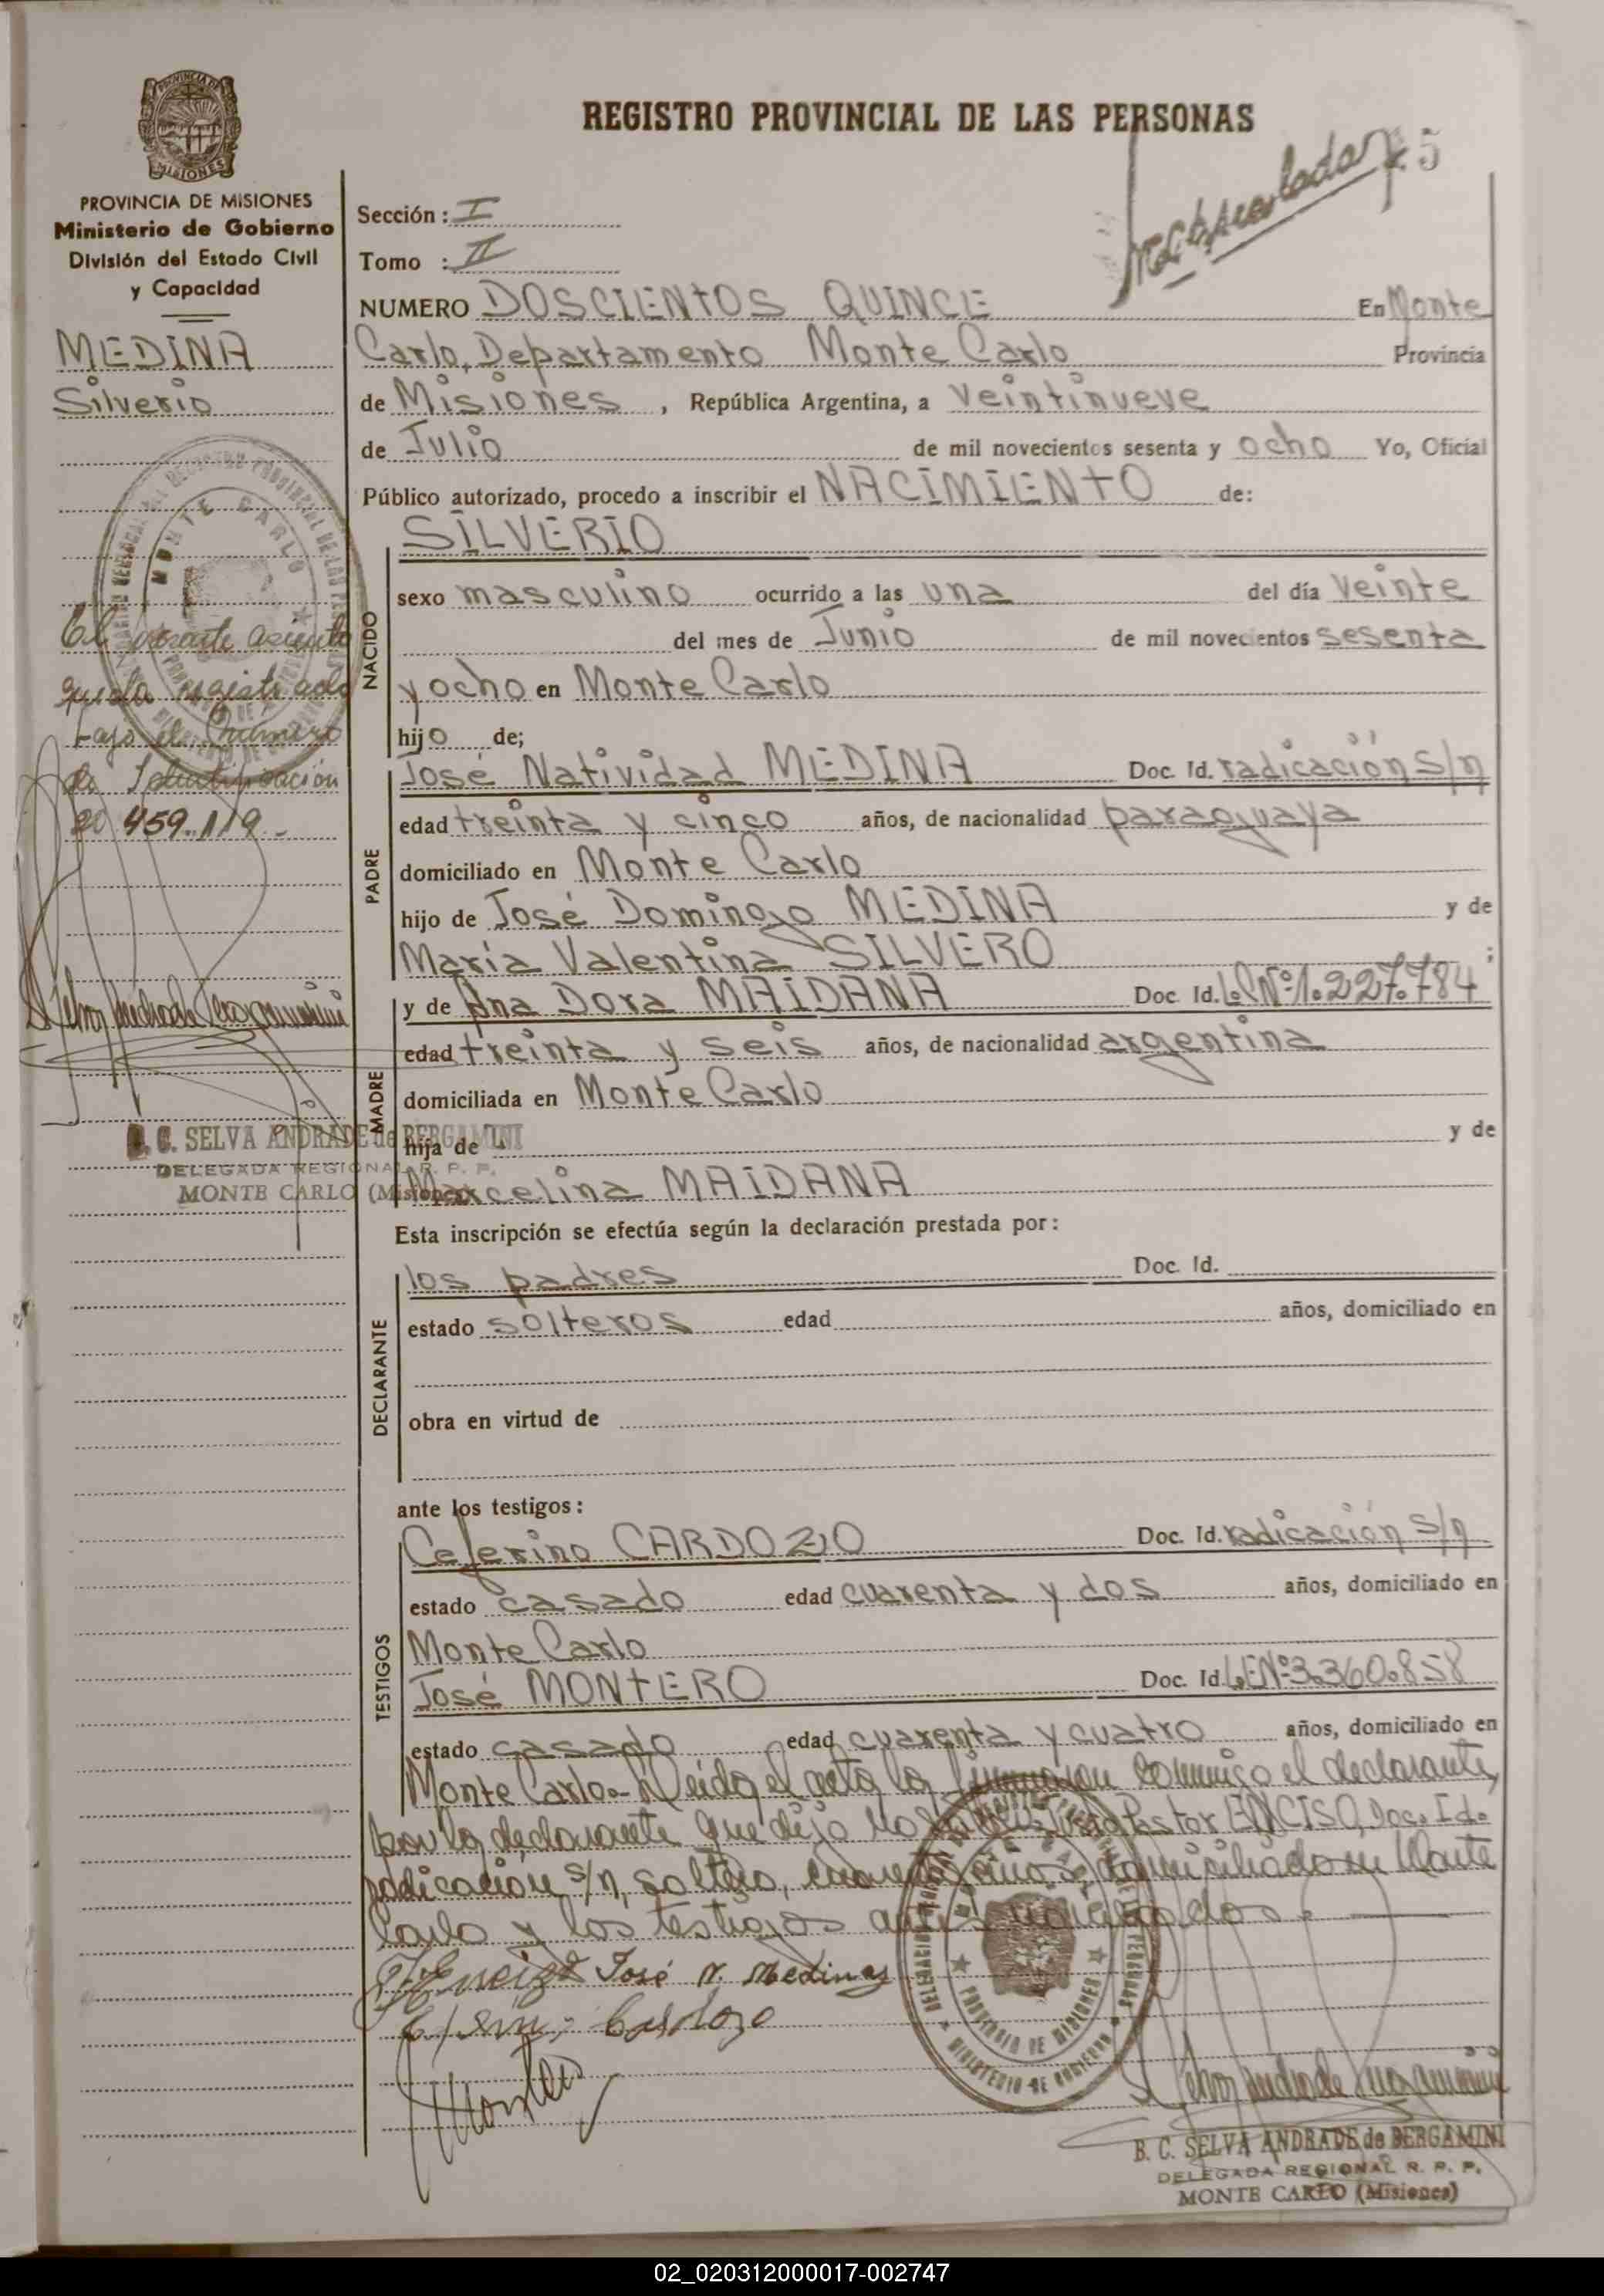 PROVINCIA DE
MISIONES
PROVINCIA DE MISIONES
Ministerio de Gobierno
División del Estado Civil
y Capacidad
MEDINA
Silverio
MONTE CARLO
El presente asiento
queda registrado
bajo el Número
de Identificación
20.459.119.-
B. C. SELVA ANDRADE de BERGAMINI
DELEGADA REGIONAL R. P. P.
MONTE CARLO (Misiones)
REGISTRO PROVINCIAL DE LAS PERSONAS
5
Sección: I
Tomo : II
NUMERO DOSCIENTOS QUINCE En Monte
Carlo, Departamento Monte Carlo Provincia
de Misiones, República Argentina, a veintinueve
de Julio de mil novecientos sesenta y ocho Yo, Oficial
Público autorizado, procedo a inscribir el NACIMIENTO de:
NACIDO
SILVERIO
sexo masculino ocurrido a las una del día veinte
del mes de Junio de mil novecientos sesenta
y ocho en Monte Carlo
hijo de;
PADRE
José Natividad MEDINA Doc. Id. radicación s/n
edad treinta y cinco años, de nacionalidad paraguaya
domiciliado en Monte Carlo
hijo de José Domingo MEDINA y de
María Valentina SILVERO ;
MADRE
y de Ana Dora MAIDANA Doc. Id. L.C Nº 1.227.784
edad treinta y seis años, de nacionalidad argentina
domiciliada en Monte Carlo
hija de - y de
Marcelina MAIDANA
Esta inscripción se efectúa según la declaración prestada por:
DECLARANTE
los padres Doc. Id.
estado solteros edad años, domiciliado en
obra en virtud de
ante los testigos:
TESTIGOS
Ceferino CARDOZO Doc. Id. radicación s/n
estado casado edad cuarenta y dos años, domiciliado en
Monte Carlo
José MONTERO Doc. Id. L.E Nº 3.360.858
estado casado edad cuarenta y cuatro años, domiciliado en
Monte Carlo.- Leída el acta la firman con conmigo el declarante,
por la declarante que dijo no Pastor ENCISO, Doc. Id.
radicación s/n, soltero, años, domiciliado en Monte
Carlo y los testigos
José N. Medina
Cardozo
PROVINCIA DE MISIONES
MINISTERIO DE GOBIERNO
B. C. SELVA ANDRADE de BERGAMINI
DELEGADA REGIONAL R. P. P.
MONTE CARLO (Misiones)
02_020312000017-002747